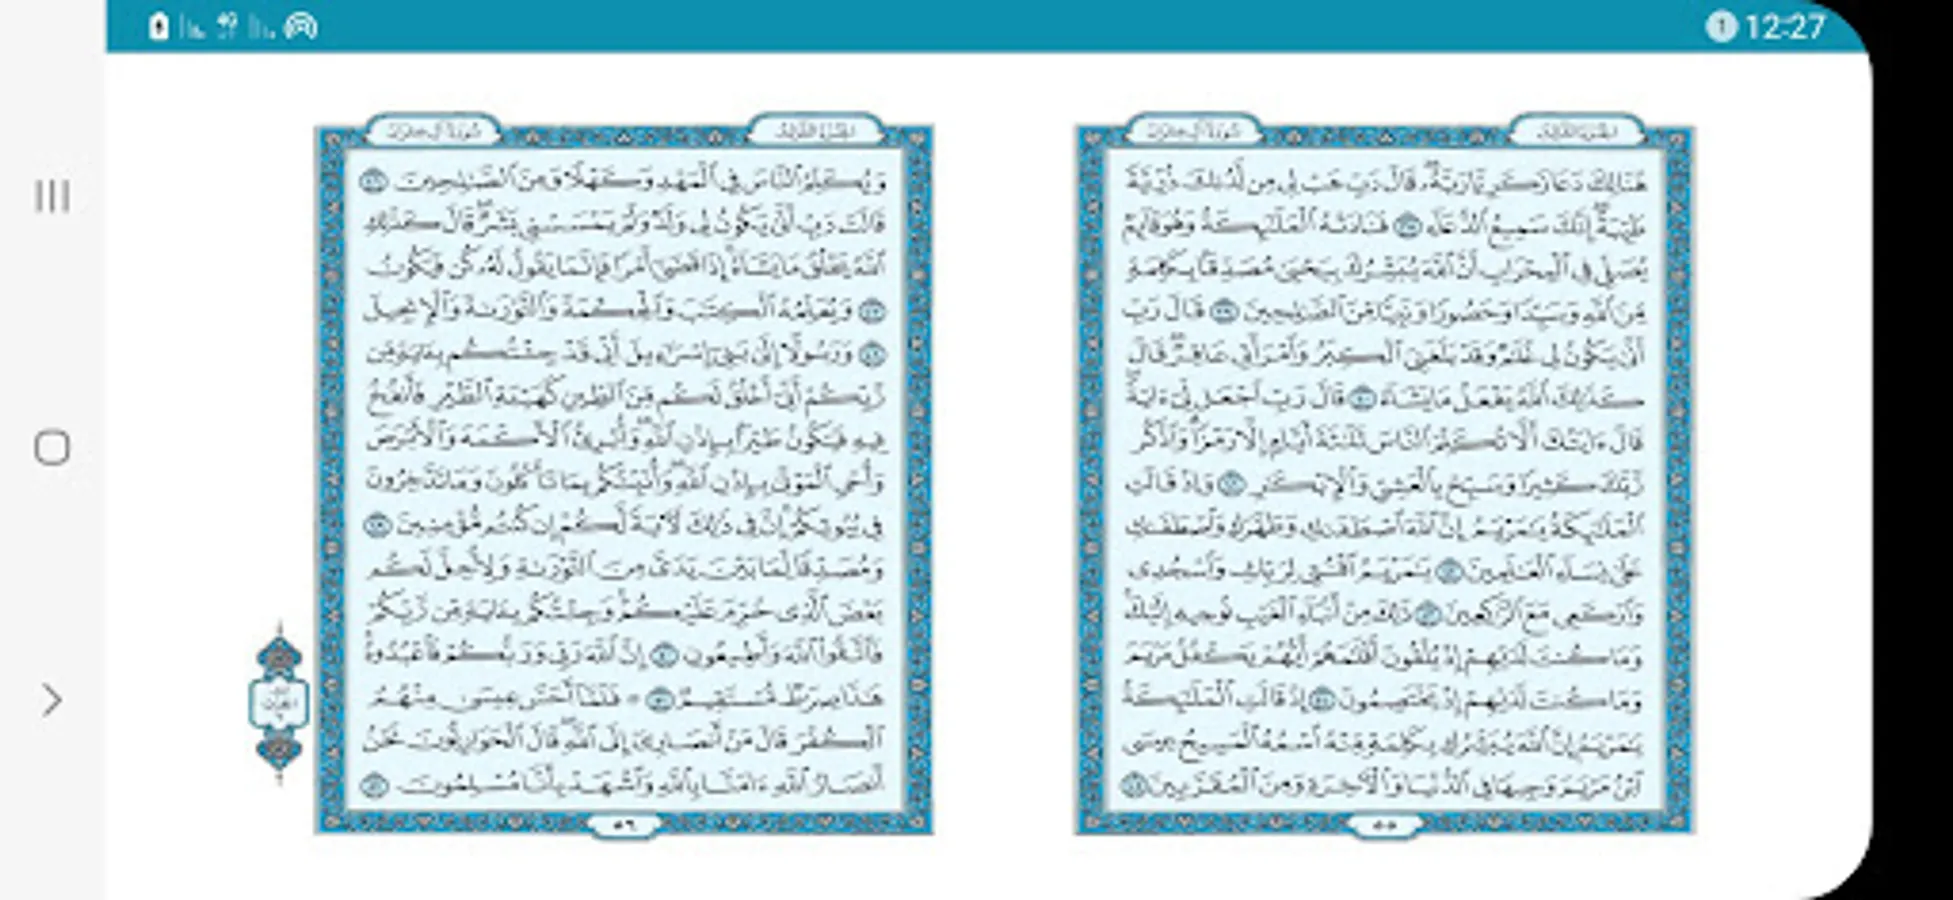 12:27
سورة آل عمران
الجزء الثالث
هُنَالِكَ دَعَا زَكَرِيَّا رَبَّهُۥ قَالَ رَبِّ هَبْ لِى مِن لَّدُنكَ ذُرِّيَّةً
طَيِّبَةً إِنَّكَ سَمِيعُ ٱلدُّعَآءِ ٣٨ فَنَادَتْهُ ٱلْمَلَٰٓئِكَةُ وَهُوَ قَآئِمٌ
يُصَلِّى فِى ٱلْمِحْرَابِ أَنَّ ٱللَّهَ يُبَشِّرُكَ بِيَحْيَىٰ مُصَدِّقًۢا بِكَلِمَةٍ
مِّنَ ٱللَّهِ وَسَيِّدًا وَحَصُورًا وَنَبِيًّا مِّنَ ٱلصَّٰلِحِينَ ٣٩ قَالَ رَبِّ
أَنَّىٰ يَكُونُ لِى غُلَٰمٌ وَقَدْ بَلَغَنِىَ ٱلْكِبَرُ وَٱمْرَأَتِى عَاقِرٌ قَالَ
كَذَٰلِكَ ٱللَّهُ يَفْعَلُ مَا يَشَآءُ ٤٠ قَالَ رَبِّ ٱجْعَل لِّىٓ ءَايَةً
قَالَ ءَايَتُكَ أَلَّا تُكَلِّمَ ٱلنَّاسَ ثَلَٰثَةَ أَيَّامٍ إِلَّا رَمْزًا وَٱذْكُر
رَّبَّكَ كَثِيرًا وَسَبِّحْ بِٱلْعَشِىِّ وَٱلْإِبْكَٰرِ ٤١ وَإِذْ قَالَتِ
ٱلْمَلَٰٓئِكَةُ يَٰمَرْيَمُ إِنَّ ٱللَّهَ ٱصْطَفَىٰكِ وَطَهَّرَكِ وَٱصْطَفَىٰكِ
عَلَىٰ نِسَآءِ ٱلْعَٰلَمِينَ ٤٢ يَٰمَرْيَمُ ٱقْنُتِى لِرَبِّكِ وَٱسْجُدِى
وَٱرْكَعِى مَعَ ٱلرَّٰكِعِينَ ٤٣ ذَٰلِكَ مِنْ أَنۢبَآءِ ٱلْغَيْبِ نُوحِيهِ إِلَيْكَ
وَمَا كُنتَ لَدَيْهِمْ إِذْ يُلْقُونَ أَقْلَٰمَهُمْ أَيُّهُمْ يَكْفُلُ مَرْيَمَ
وَمَا كُنتَ لَدَيْهِمْ إِذْ يَخْتَصِمُونَ ٤٤ إِذْ قَالَتِ ٱلْمَلَٰٓئِكَةُ
يَٰمَرْيَمُ إِنَّ ٱللَّهَ يُبَشِّرُكِ بِكَلِمَةٍ مِّنْهُ ٱسْمُهُ ٱلْمَسِيحُ عِيسَى
ٱبْنُ مَرْيَمَ وَجِيهًا فِى ٱلدُّنْيَا وَٱلْءَاخِرَةِ وَمِنَ ٱلْمُقَرَّبِينَ ٤٥
٥٥
سورة آل عمران
الجزء الثالث
وَيُكَلِّمُ ٱلنَّاسَ فِى ٱلْمَهْدِ وَكَهْلًا وَمِنَ ٱلصَّٰلِحِينَ ٤٦
قَالَتْ رَبِّ أَنَّىٰ يَكُونُ لِى وَلَدٌ وَلَمْ يَمْسَسْنِى بَشَرٌ قَالَ كَذَٰلِكِ
ٱللَّهُ يَخْلُقُ مَا يَشَآءُ إِذَا قَضَىٰٓ أَمْرًا فَإِنَّمَا يَقُولُ لَهُۥ كُن فَيَكُونُ
٤٧ وَيُعَلِّمُهُ ٱلْكِتَٰبَ وَٱلْحِكْمَةَ وَٱلتَّوْرَىٰةَ وَٱلْإِنجِيلَ
٤٨ وَرَسُولًا إِلَىٰ بَنِىٓ إِسْرَٰٓءِيلَ أَنِّى قَدْ جِئْتُكُم بِـَٔايَةٍ مِّن
رَّبِّكُمْ أَنِّىٓ أَخْلُقُ لَكُم مِّنَ ٱلطِّينِ كَهَيْـَٔةِ ٱلطَّيْرِ فَأَنفُخُ
فِيهِ فَيَكُونُ طَيْرًۢا بِإِذْنِ ٱللَّهِ وَأُبْرِئُ ٱلْأَكْمَهَ وَٱلْأَبْرَصَ
وَأُحْىِ ٱلْمَوْتَىٰ بِإِذْنِ ٱللَّهِ وَأُنَبِّئُكُم بِمَا تَأْكُلُونَ وَمَا تَدَّخِرُونَ
فِى بُيُوتِكُمْ إِنَّ فِى ذَٰلِكَ لَءَايَةً لَّكُمْ إِن كُنتُم مُّؤْمِنِينَ ٤٩
وَمُصَدِّقًا لِّمَا بَيْنَ يَدَىَّ مِنَ ٱلتَّوْرَىٰةِ وَلِأُحِلَّ لَكُم
بَعْضَ ٱلَّذِى حُرِّمَ عَلَيْكُمْ وَجِئْتُكُم بِـَٔايَةٍ مِّن رَّبِّكُمْ
فَٱتَّقُوا۟ ٱللَّهَ وَأَطِيعُونِ ٥٠ إِنَّ ٱللَّهَ رَبِّى وَرَبُّكُمْ فَٱعْبُدُوهُ
هَٰذَا صِرَٰطٌ مُّسْتَقِيمٌ ٥١ ۞ فَلَمَّآ أَحَسَّ عِيسَىٰ مِنْهُمُ
ٱلْكُفْرَ قَالَ مَنْ أَنصَارِىٓ إِلَى ٱللَّهِ قَالَ ٱلْحَوَارِيُّونَ نَحْنُ
أَنصَارُ ٱللَّهِ ءَامَنَّا بِٱللَّهِ وَٱشْهَدْ بِأَنَّا مُسْلِمُونَ ٥٢
٥٦